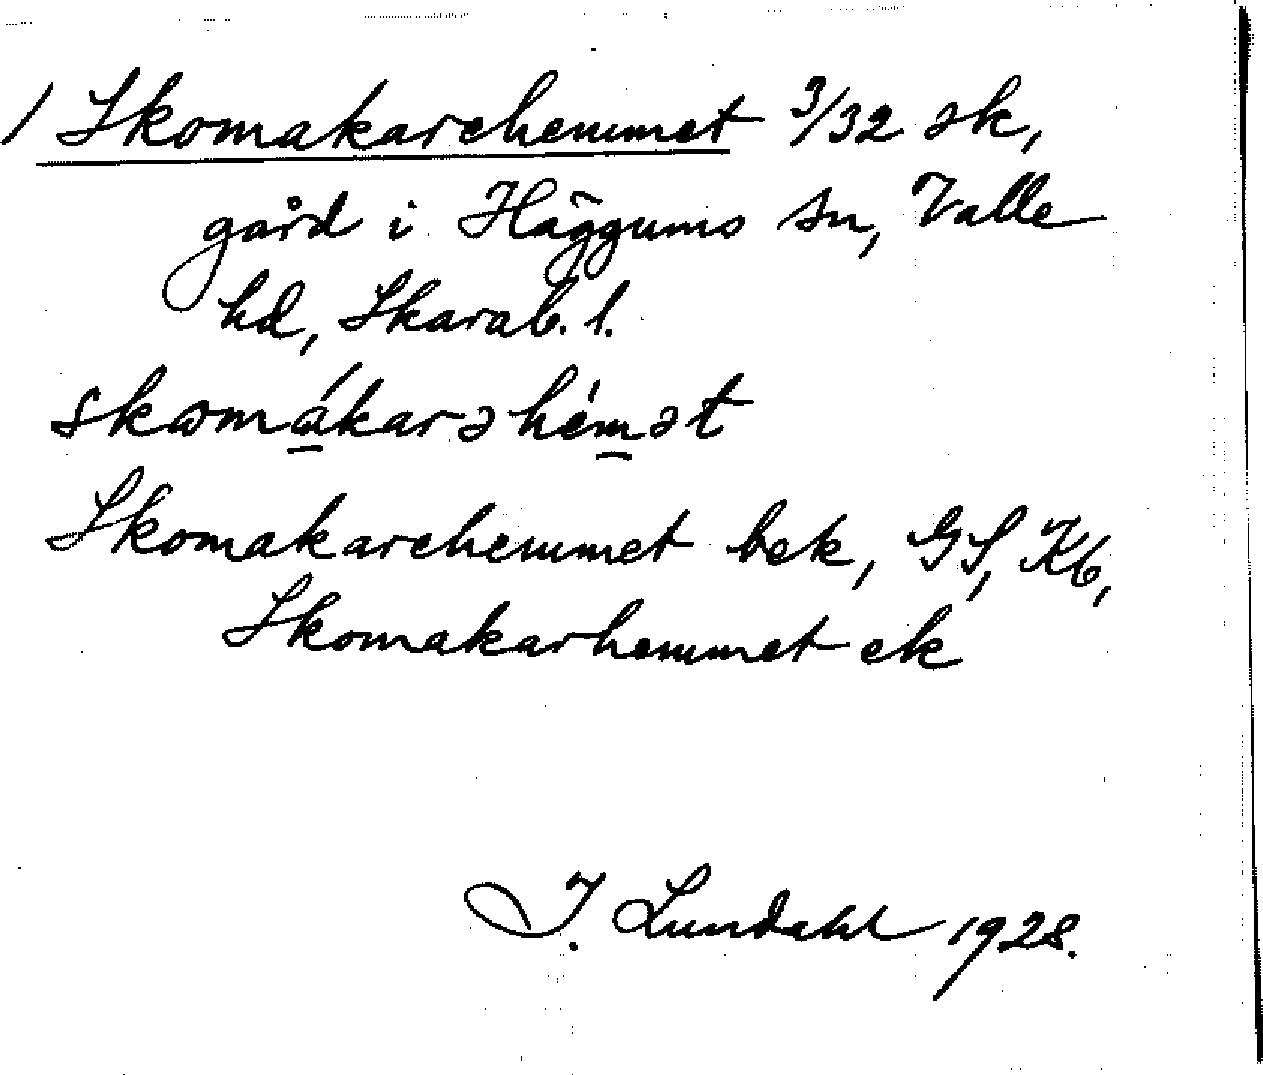 / Skomakarehemmet 3/32 sk,
gård i Häggums sn, Valle
hd, Skarab. l.
skωmákarəhémət
Skomakarehemmet bek, GS, Kb,
Skomakarhemmet ek
I. Lundahl 1928.